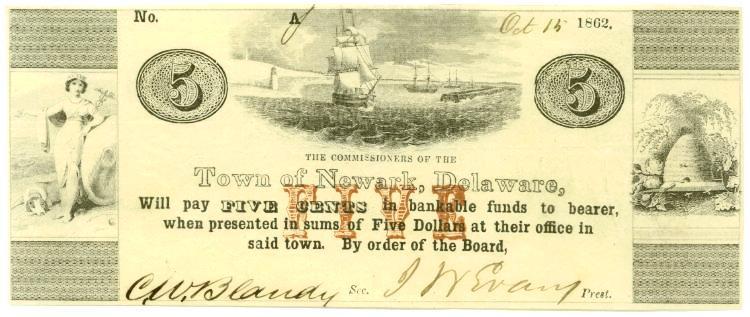 No. A Oct 15 1862.
5 5
THE COMMISSIONERS OF THE
Town of Newark, Delaware,
FIVE
Will pay FIVE CENTS in bankable funds to bearer,
when presented in sums of Five Dollars at their office in
said town. By order of the Board,
C.W. Blandy Sec. J W Evans Prest.